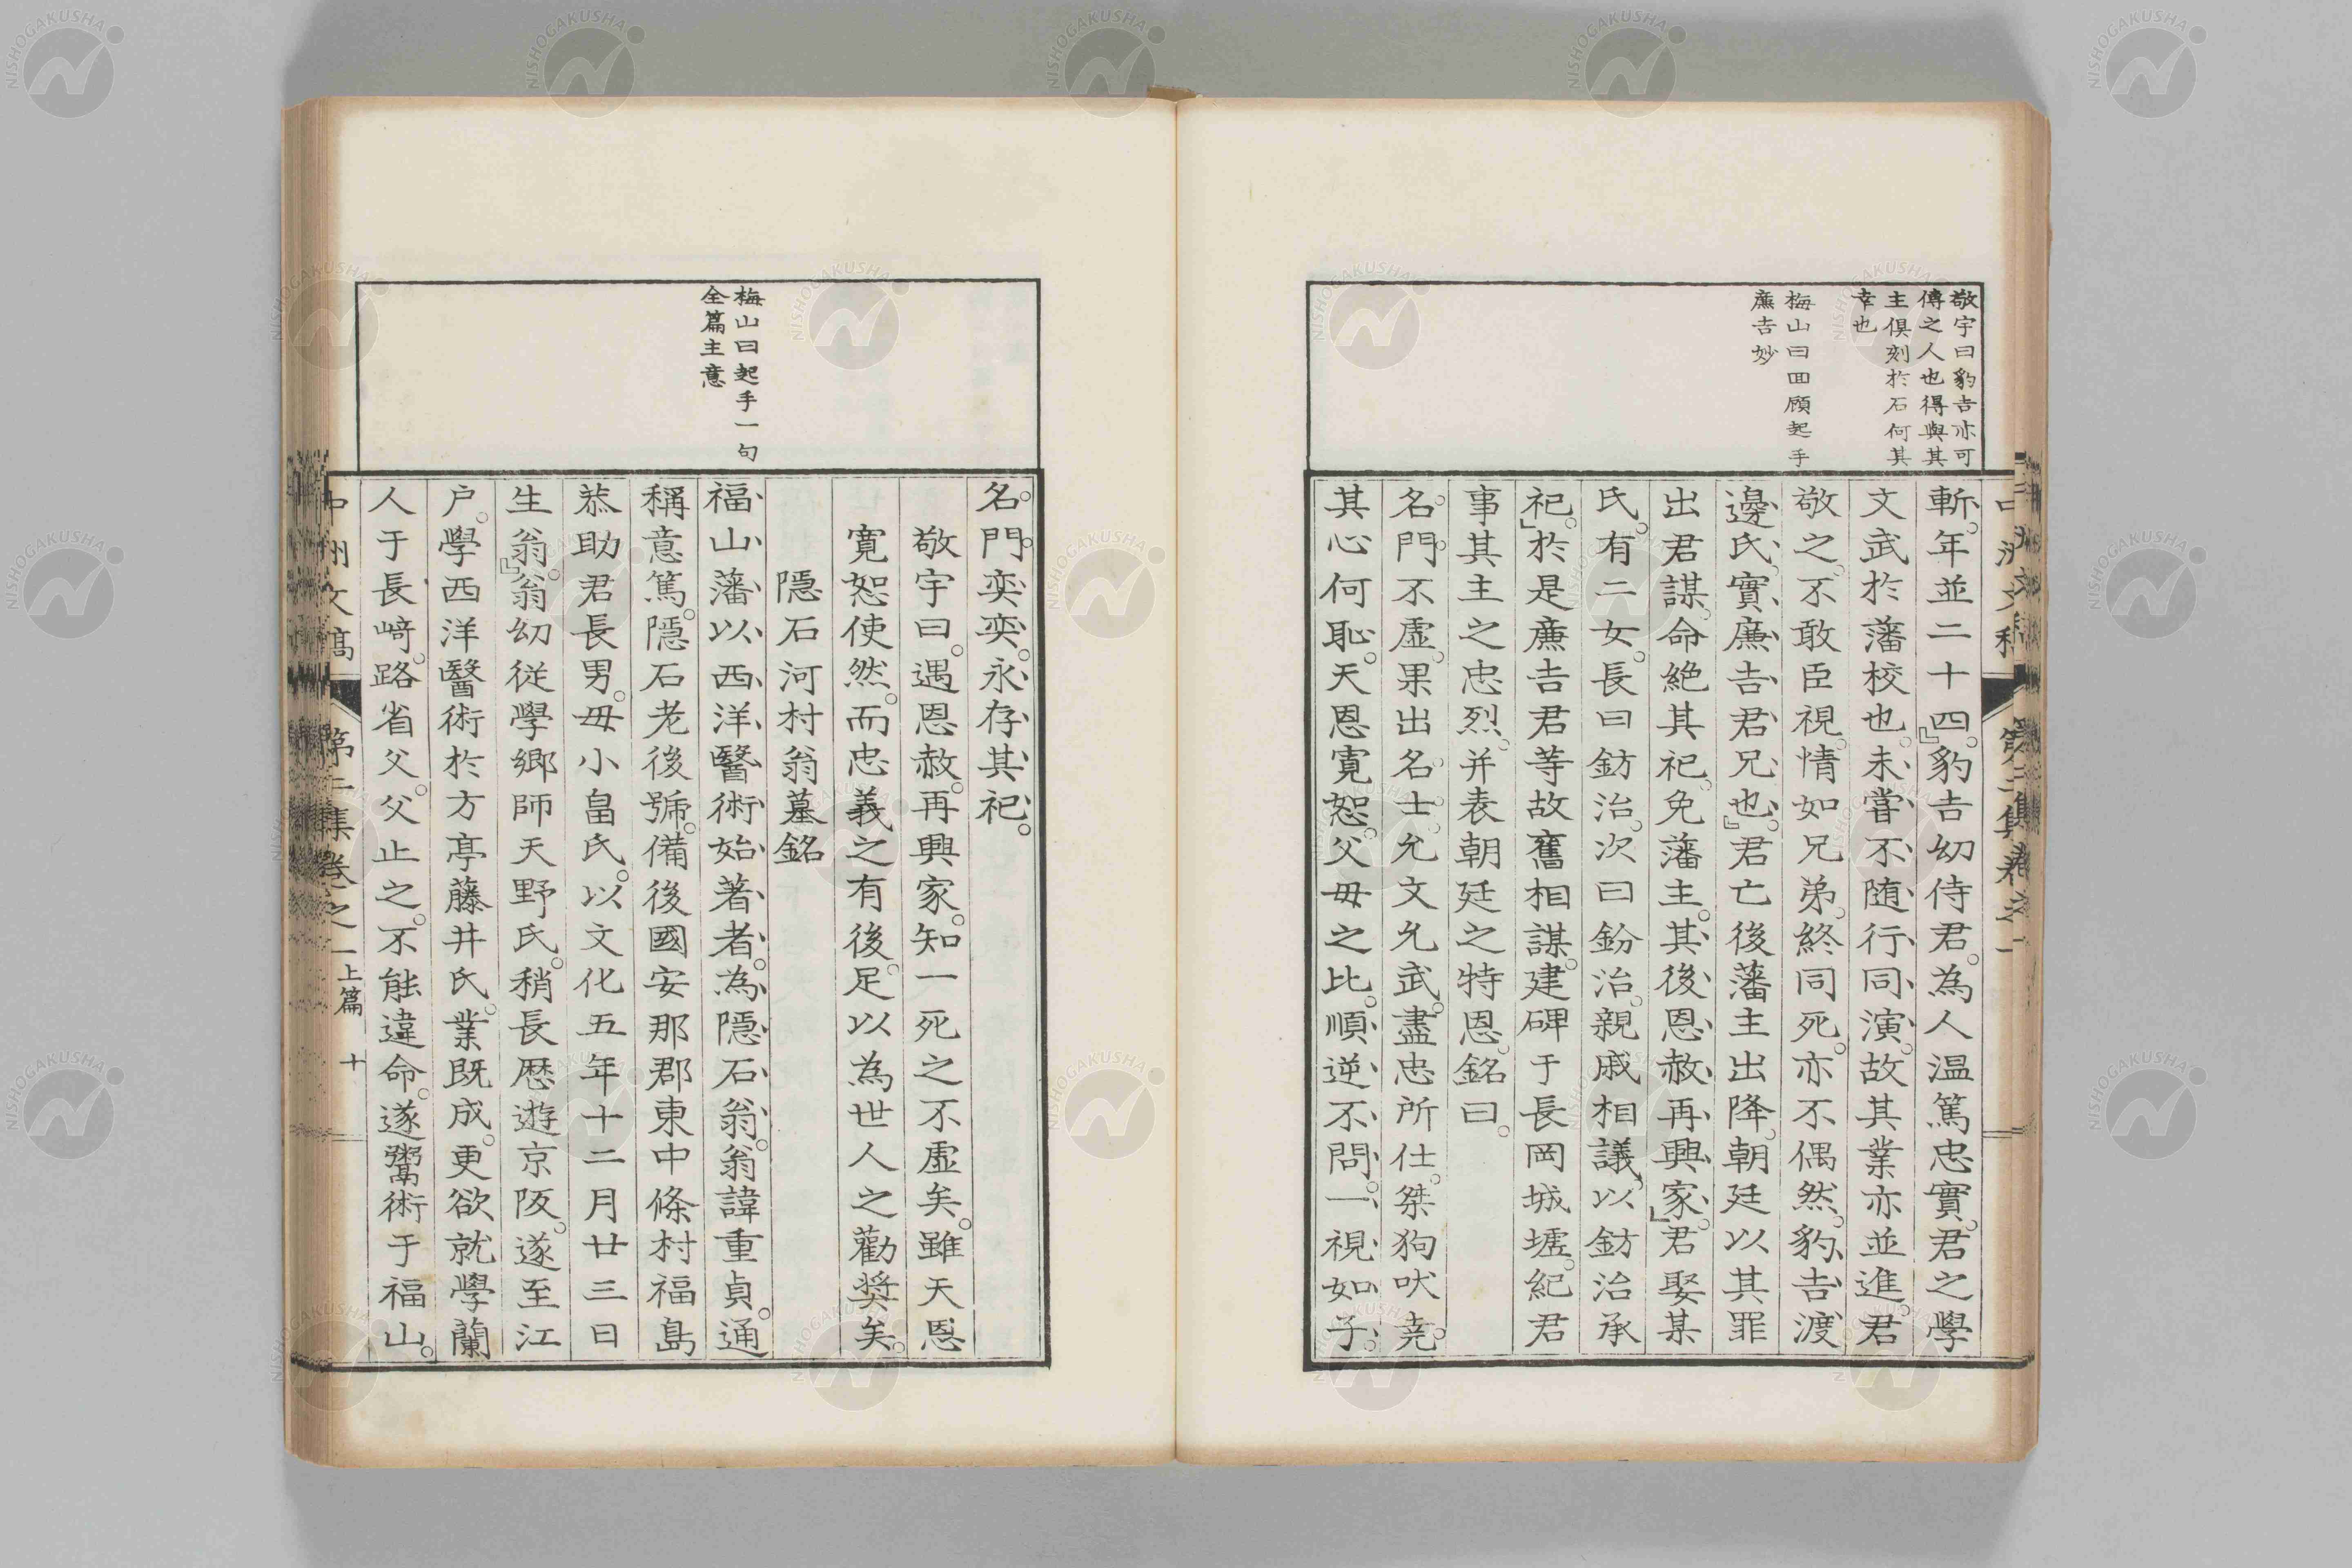 敬宇曰豹吉亦可
傳之人也得與其
主俱刻於石何其
幸也
梅山曰回顧起手
廉吉妙
斬。年並二十四。豹吉幼侍君。為人温篤忠實。君之學
文武於藩校也。未嘗不随行同演。故其業亦並進。君
敬之。不敢臣視。情如兄弟。終同死。亦不偶然。豹吉渡
邊氏。實廉吉君兄也。君亡後藩主出降。朝廷以其罪
出君謀。命絶其祀。免藩主。其後恩赦再興家。君娶某
氏。有二女。長曰鈁治。次曰鈖治。親戚相議、以鈁治承
祀。於是廉吉君等故舊相謀。建碑于長岡城墟。紀君
事其主之忠烈。并表朝廷之特恩。銘曰。
名門不虛。果出名士。允文允武。盡忠所仕。桀狗吠堯。
其心何恥。天恩寛恕。父毋之比。順逆不問。一視如子。
名門奕奕。永存其祀。
敬宇曰。遇恩赦。再興家。知一死之不虛矣。雖天恩
寛恕使然。而忠義之有後。足以為世人之勸奬矣。
隱石河村翁墓銘
梅山曰起手一句
全篇主意
福山藩以西洋醫術始著者。為隱石翁。翁諱重貞。通
稱意篤。隱石老後號。備後國安那郡東中條村福島
恭助君長男。毋小畠氏。以文化五年十二月廿三日
生翁。翁幼従學郷師天野氏。稍長歴遊京阪。遂至江
户。學西洋醫術於方亭藤井氏。業既成。更欲就學蘭
人于長﨑。路省父。父止之。不能違命。遂鬻術于福山。
中洲文稿 第三集卷之一 上篇 十